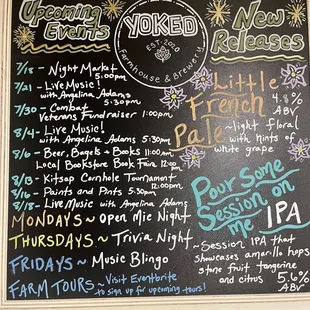 Upcoming Events
7/18 - Night Market 5:00pm
7/21 - Live Music!
with Angelina Adams 5:30pm
7/30 - Combat
Veterans Fundraiser 11:00pm
8/4 - Live Music!
with Angelina Adams 5:30pm
8/6 - Beer, Bagels & Books 11:00am
Local Bookstore Book Fair 12:00pm
8/13 - Kitsap Cornhole Tournament
12:00pm
8/16 - Paints and Pints 5:30pm
8/18 - Live Music with Angelina Adams
MONDAYS ~ Open Mic Night
THURSDAYS ~ Trivia Night
FRIDAYS ~ Music Blingo
FARM TOURS ~ Visit Eventbrite
to sign up for upcoming tours!
YOKED
EST. 20
Farmhouse & Brewery
New Releases
Little
French 4.8%
Pale ABV
~ light floral
with hints of
white grape
Pour Some
Session on
me IPA
~ Session IPA that
showcases amarillo hops
stone fruit tangerine
and citrus 5.6%
ABV